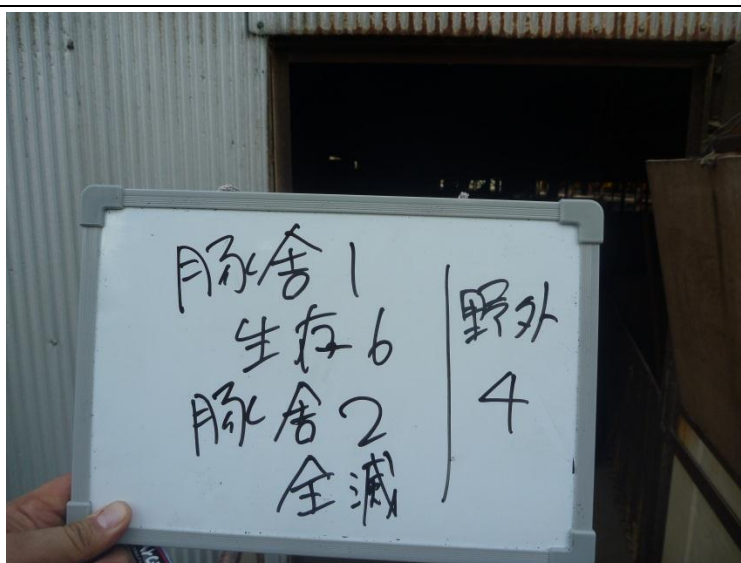 豚舎1
生存6
豚舎2
全滅
野外
4